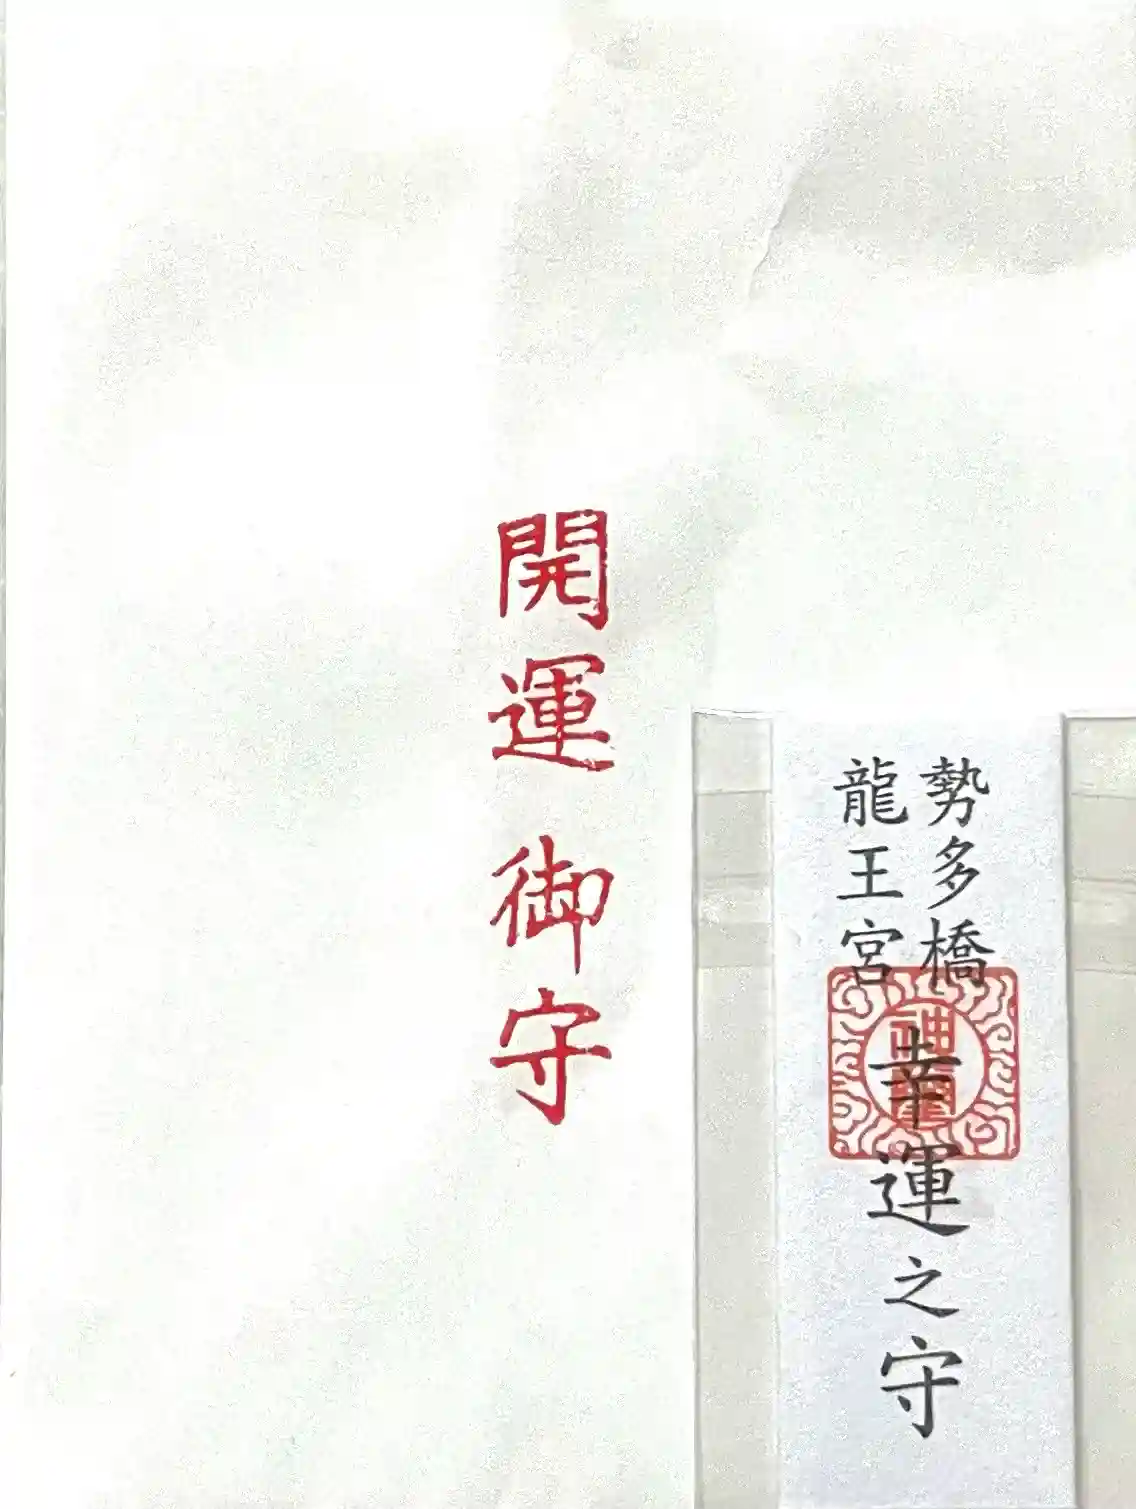 開運 御守
勢多橋
龍王宮
幸運之守